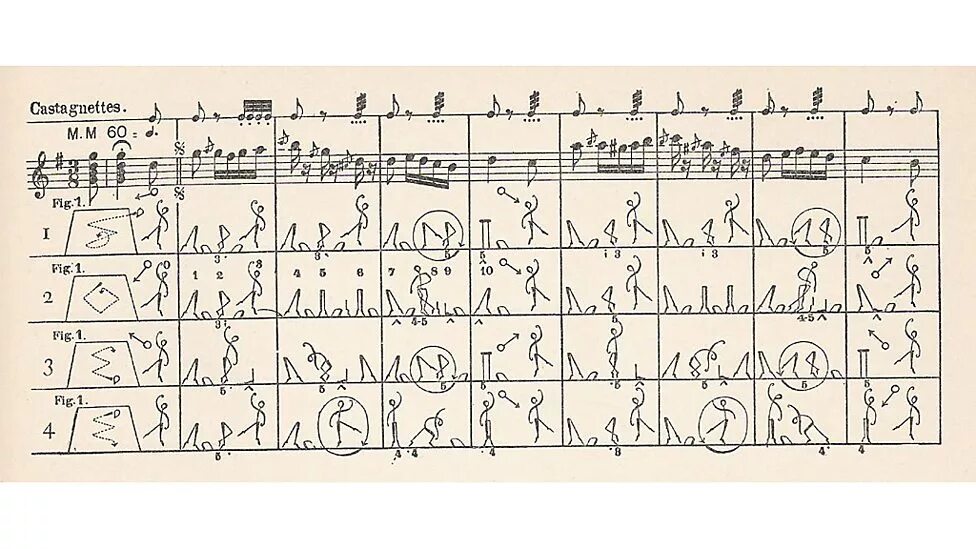 Castagnettes.
M.M 60 =
3
8
Fig.1.
1
3.
3.
5
5
i 3
i 3
5
5
Fig.1.
1 2 3 4 5 6 7 8 9 10
2
3
4-5
5
4-5
Fig.1.
3
5
5
5
5
5
5
5
5
Fig.1.
4
5
4 4
4
8
4
4